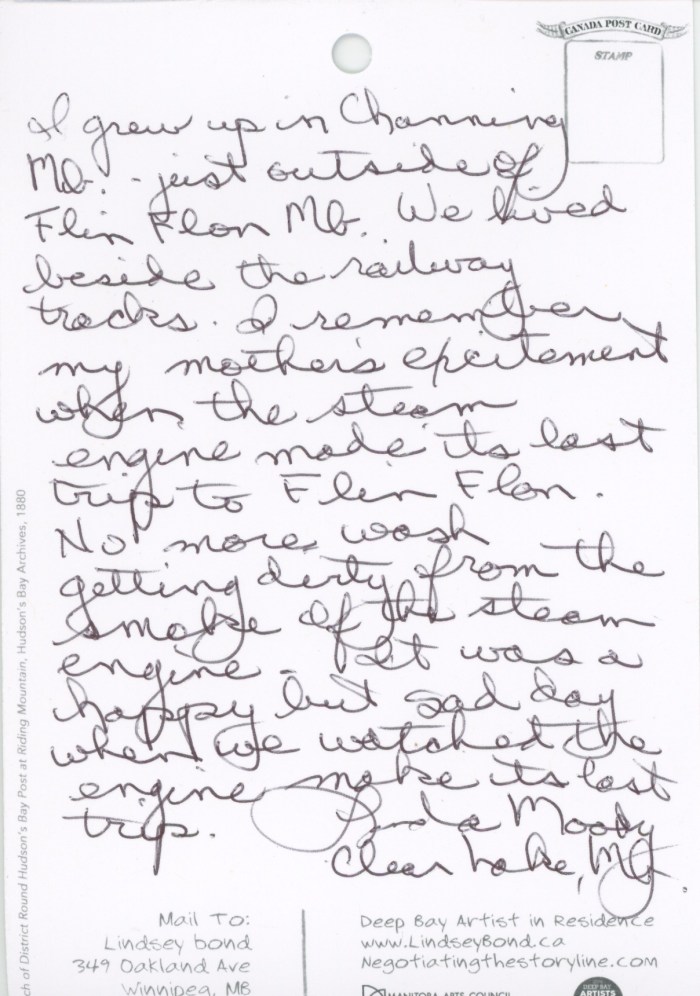 CANADA POST CARD
STAMP
I grew up in Channing
Mb. - just outside of
Flin Flon Mb. We lived
beside the railway
tracks. I remember
my mother's excitement
when the steam
engine made its last
trip to Flin Flon.
No more wash
getting dirty from the
smoke of the steam
engine. It was a
happy but sad day
when we watched the
engine make its last
trip.
Linda Moody
Clear Lake, Mb.
ch of District Round Hudson's Bay Post at Riding Mountain, Hudson's Bay Archives, 1880
Mail To:
Lindsey bond
349 Oakland Ave
Winnipeg, MB
Deep Bay Artist in Residence
www.LindseyBond.ca
Negotiatingthestoryline.com
MANITOBA ARTS COUNCIL
DEEP BAY
ARTISTS